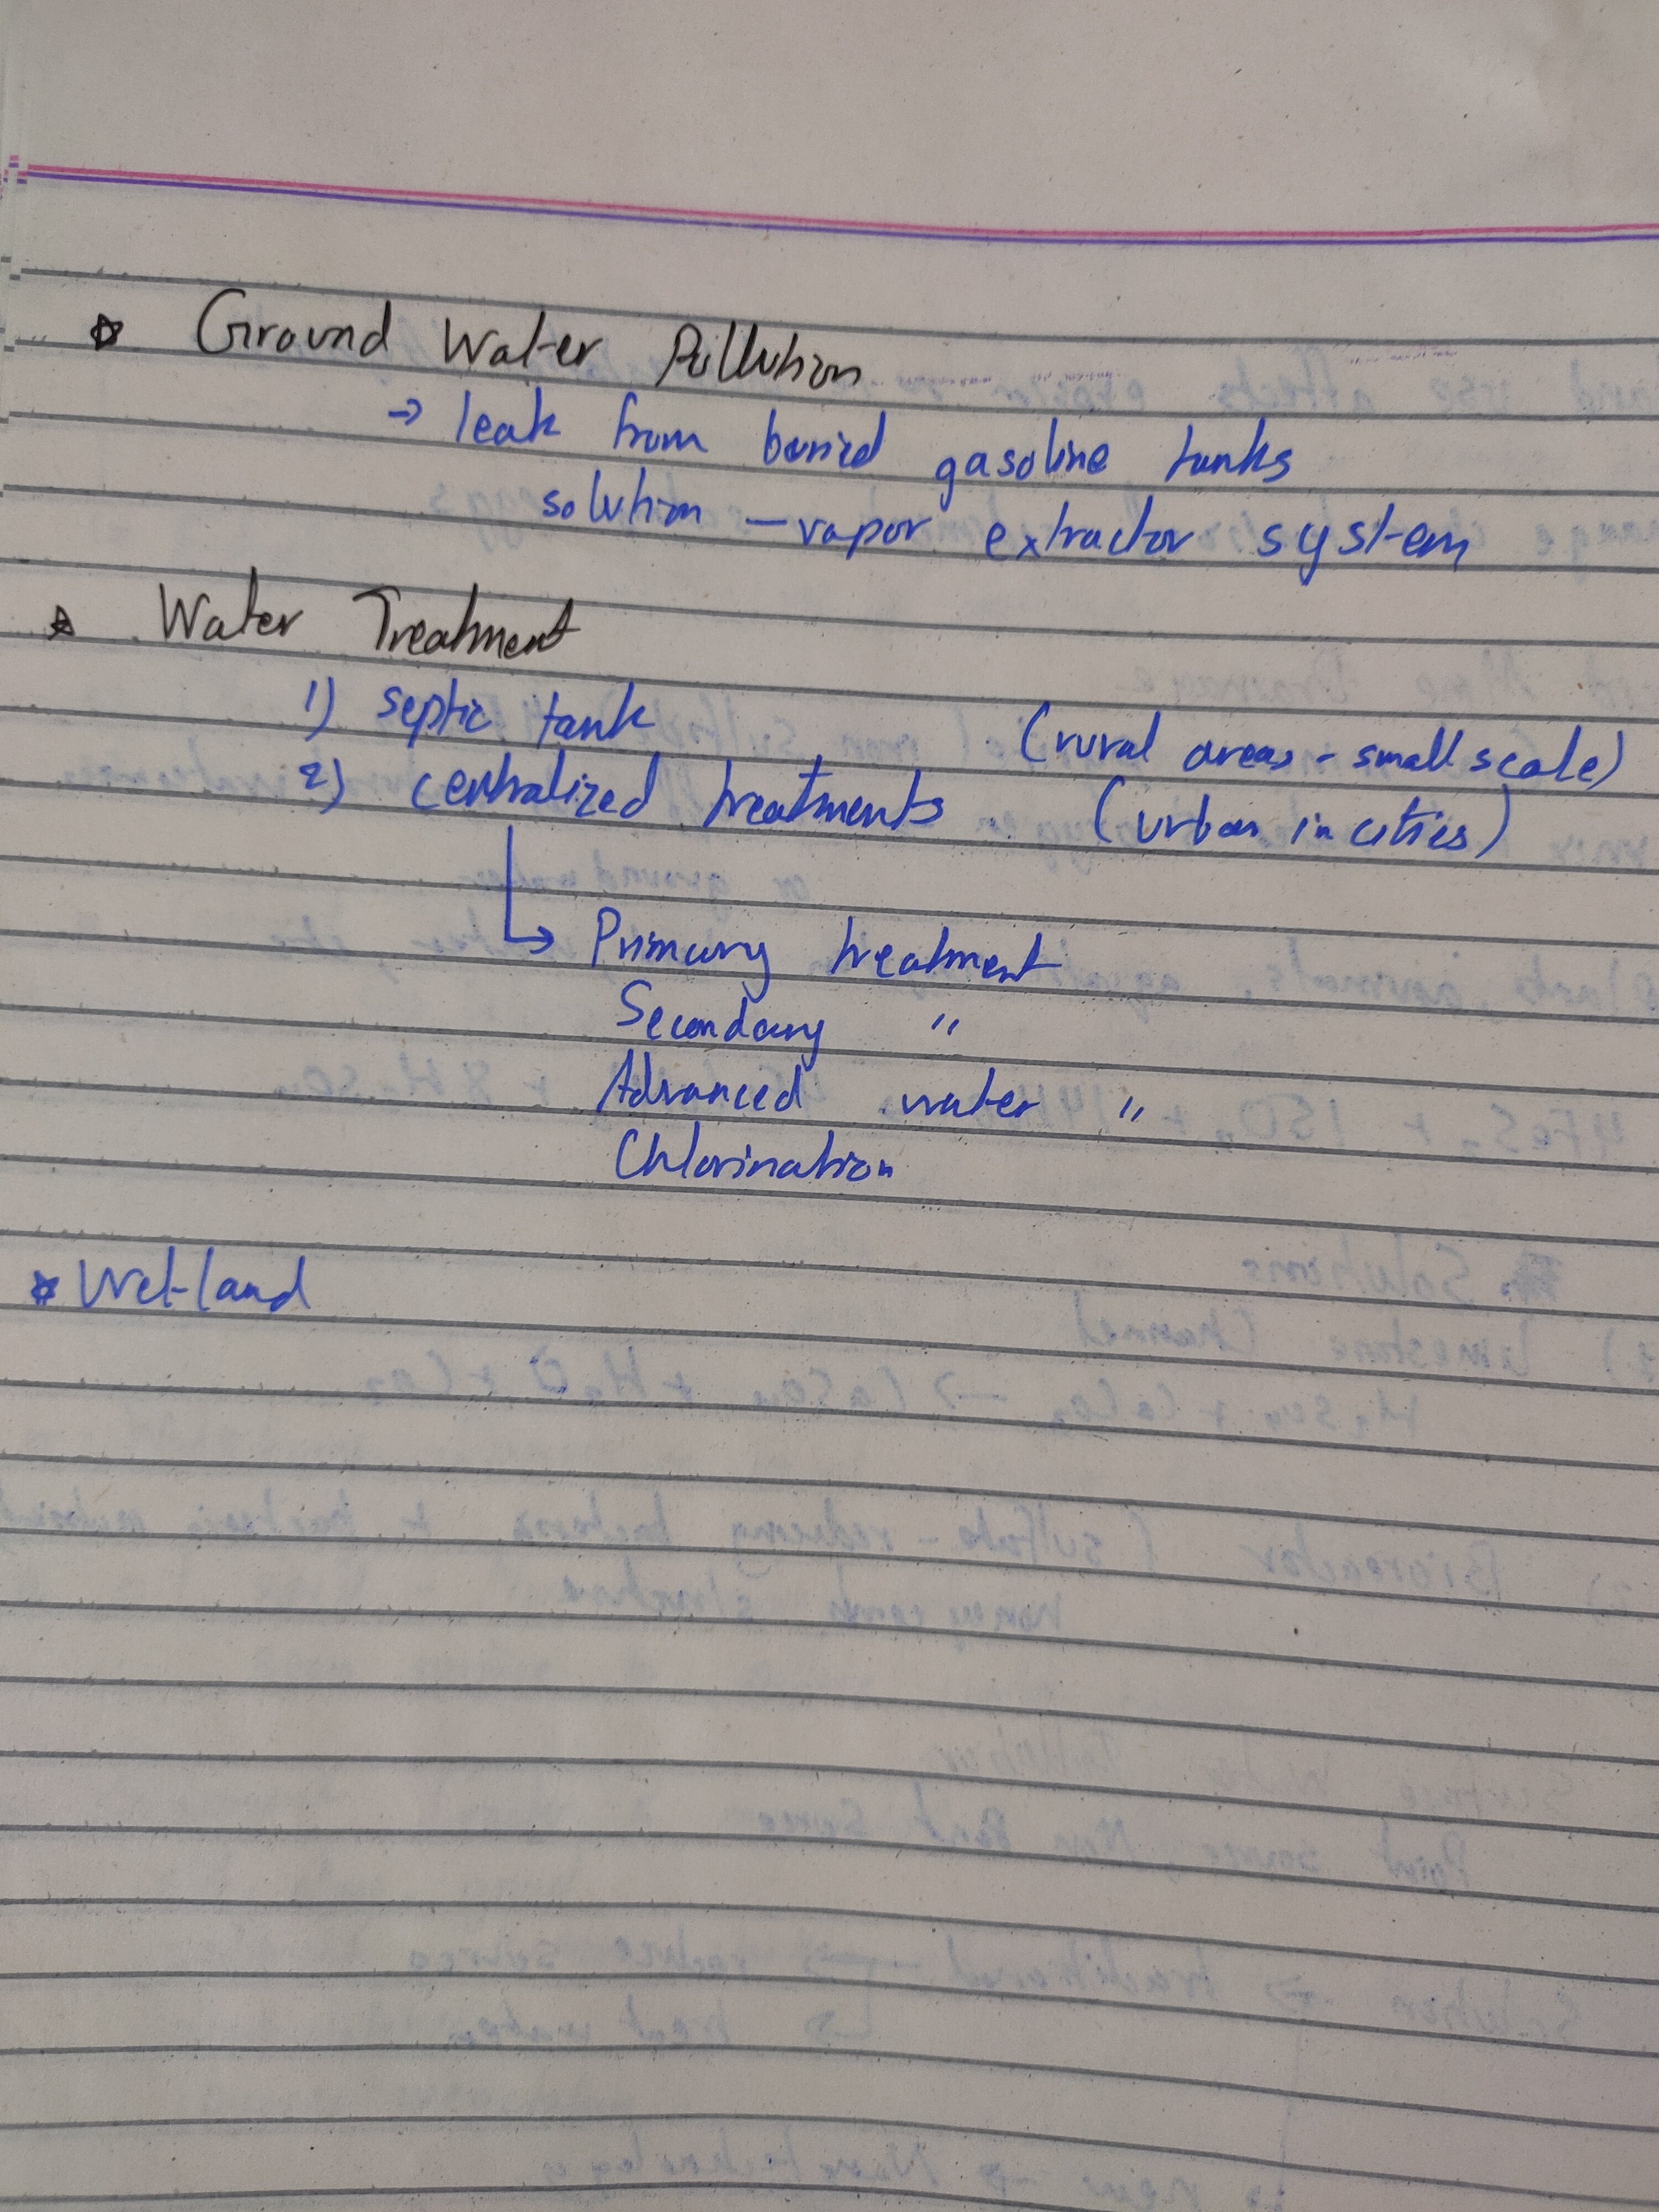 ☆ Ground Water Pollution
→ leak from buried gasoline tanks
solution – vapor extractor system
☆ Water Treatment
1) septic tank (rural areas - small scale)
2) centralized treatments (urban in cities)
↳ Primary treatment
Secondary "
Advanced water "
Chlorination
☆ Wet-land